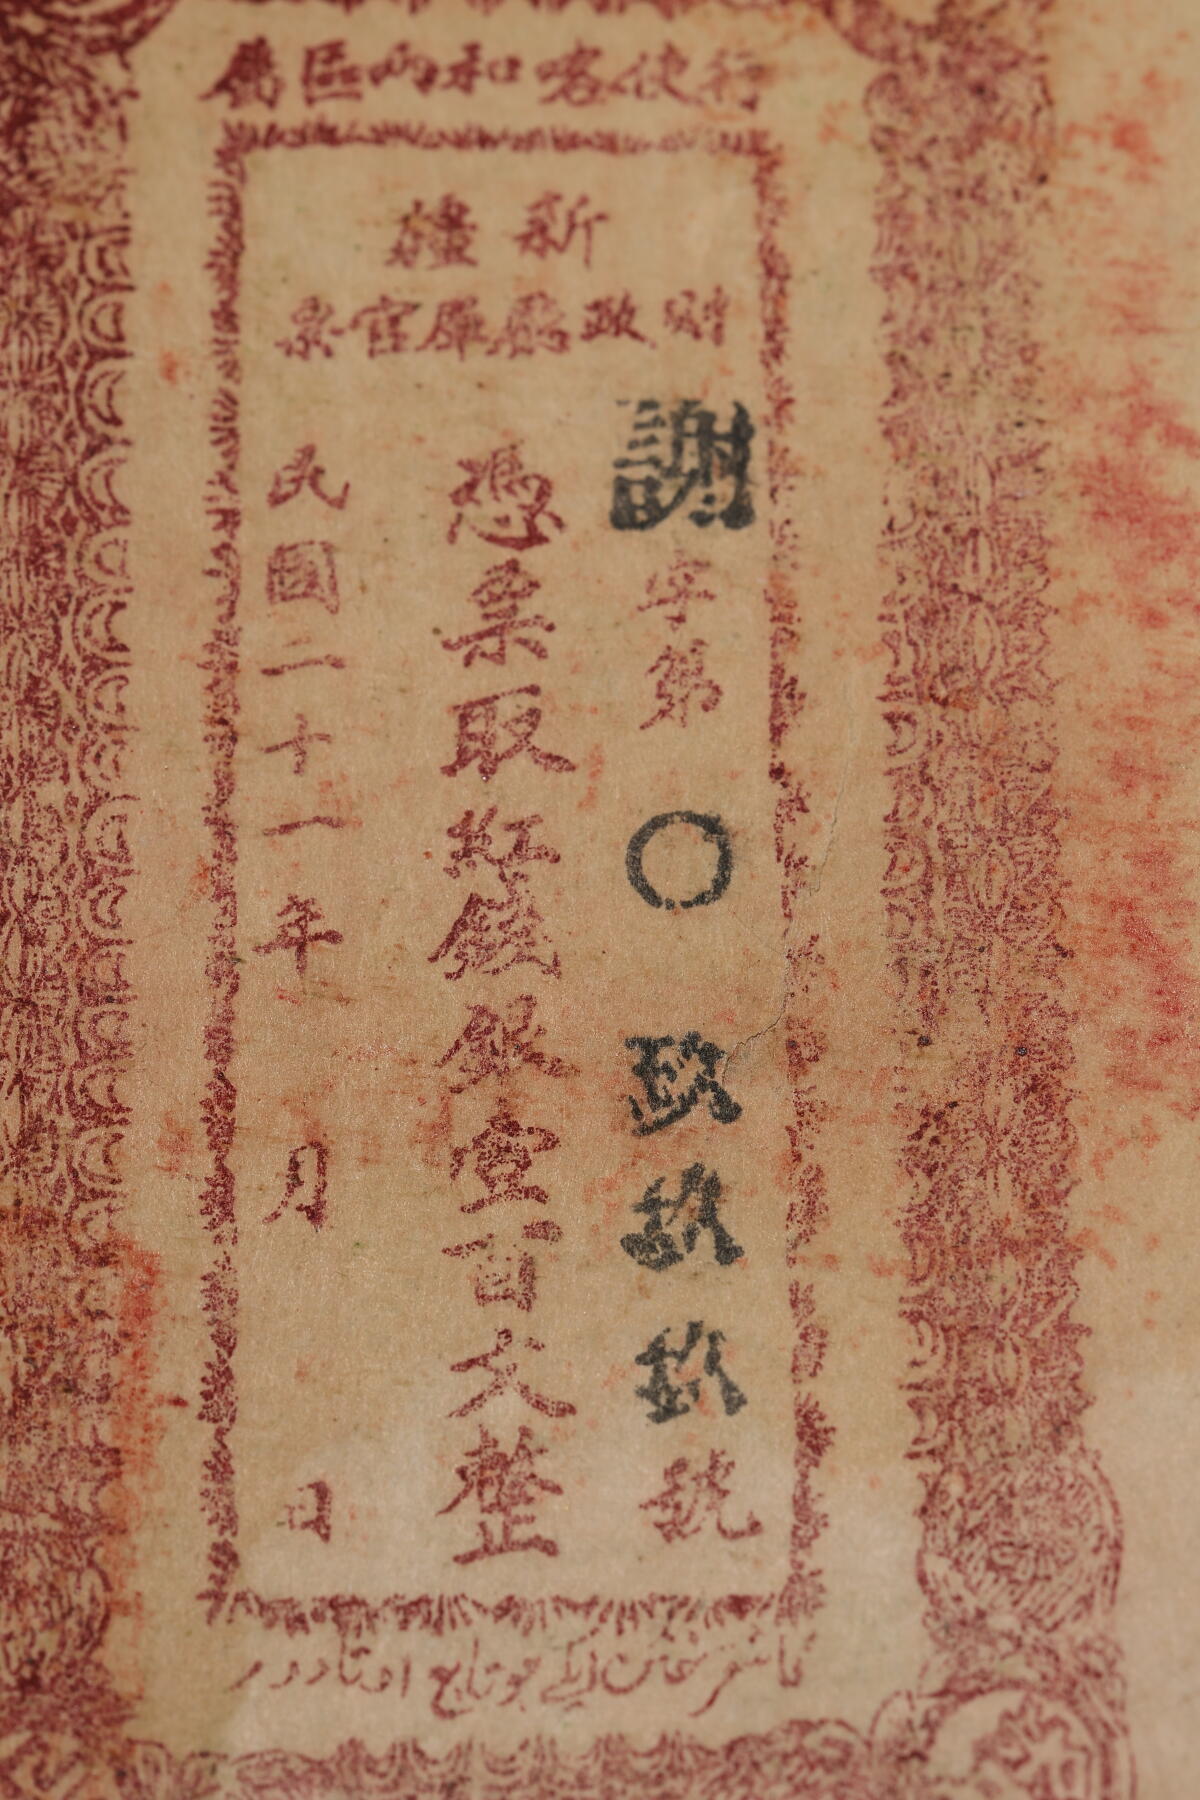 行使喀和两區廣
新疆
财政廳庫官票
謝字第〇玖玖玖號
憑票取紅錢銀壹百文整
民國二十一年 月 日